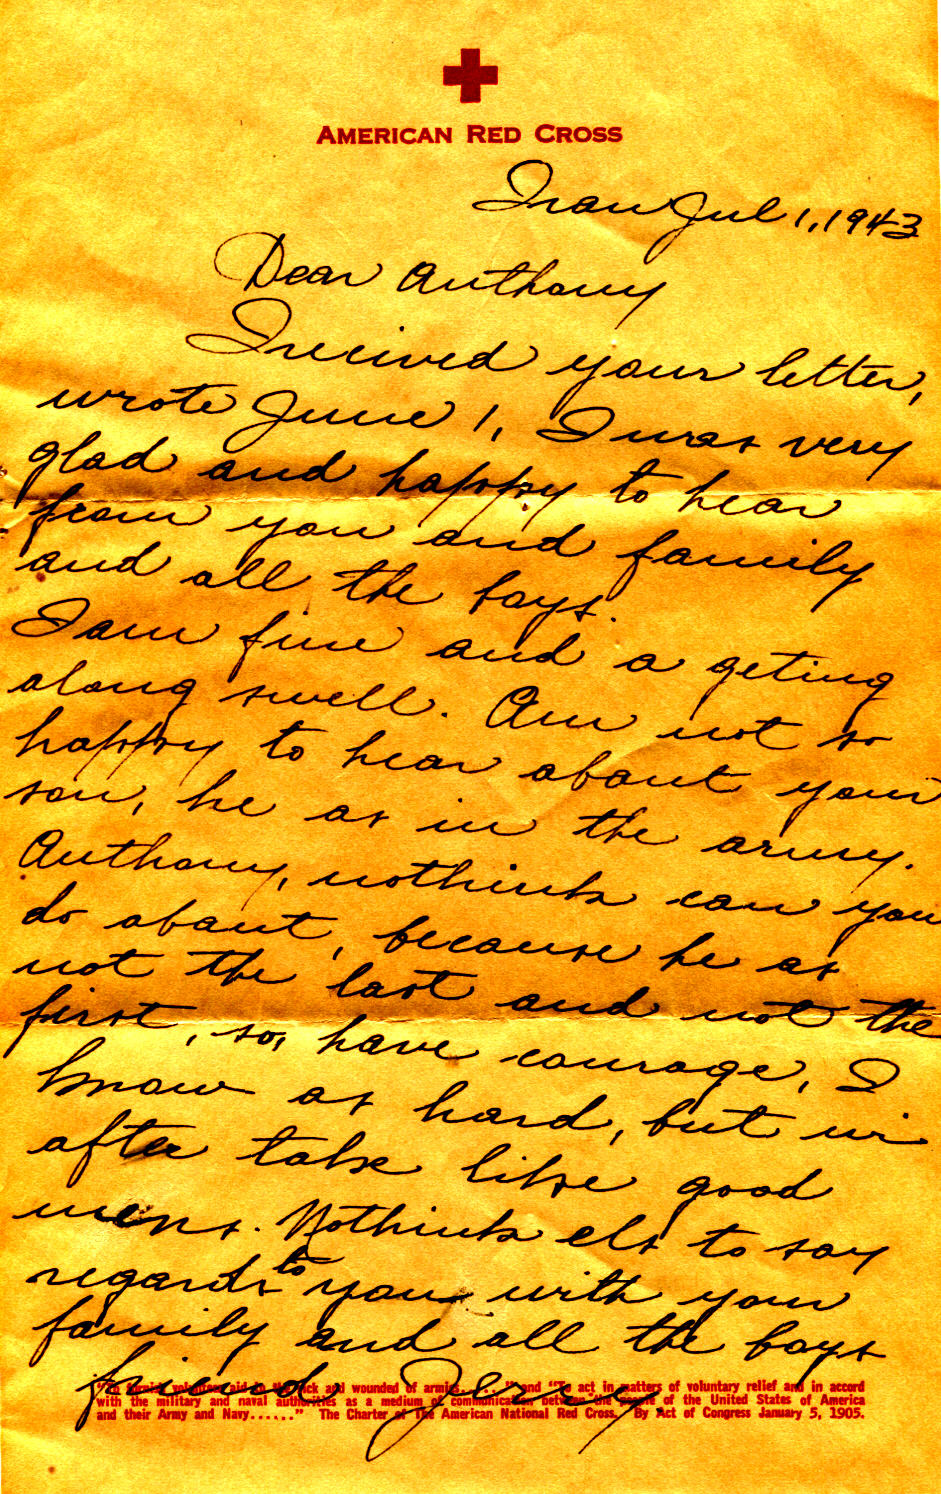 AMERICAN RED CROSS
Iran Jul 1, 1943
Dear Anthony
I recived your letter,
wrote June 1, I was very
glad and happy to hear
from you and family
and all the boys.
I am fine and a geting
along swell. Am not so
happy to hear about your
son, he as in the army.
Anthony, nothink can you
do about, because he as
not the last and not the
first, so, have courage, I
know as hard, but wi
after take like good
mens. Nothink els to say
regards to you with your
family and all the boys
friend Jerry.
"To furnish volunteer aid to the sick and wounded of armies......" and "To act in matters of voluntary relief and in accord
with the military and naval authorities as a medium of communication between the people of the United States of America
and their Army and Navy......" The Charter of The American National Red Cross. By Act of Congress January 5, 1905.